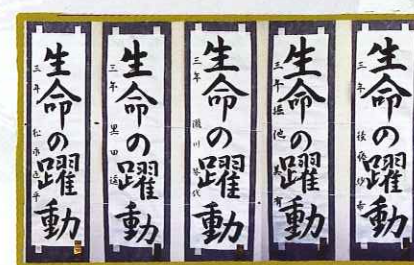 生命の躍動
三年
生命の躍動
三年 黒田
生命の躍動
三年 瀬川
生命の躍動
三年 堀池
生命の躍動
三年 後